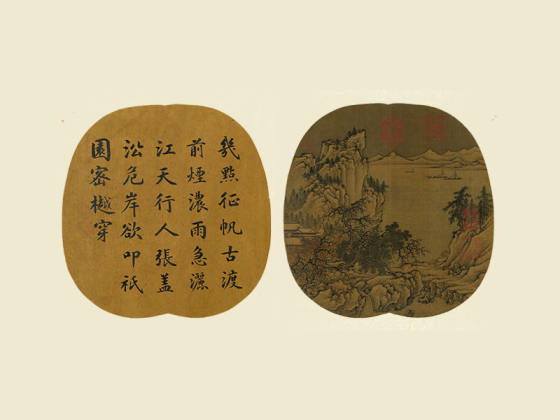 幾點征帆古渡
前煙濃雨急灑
江天行人張蓋
㳂危岸欲叩祇
園密樾穿